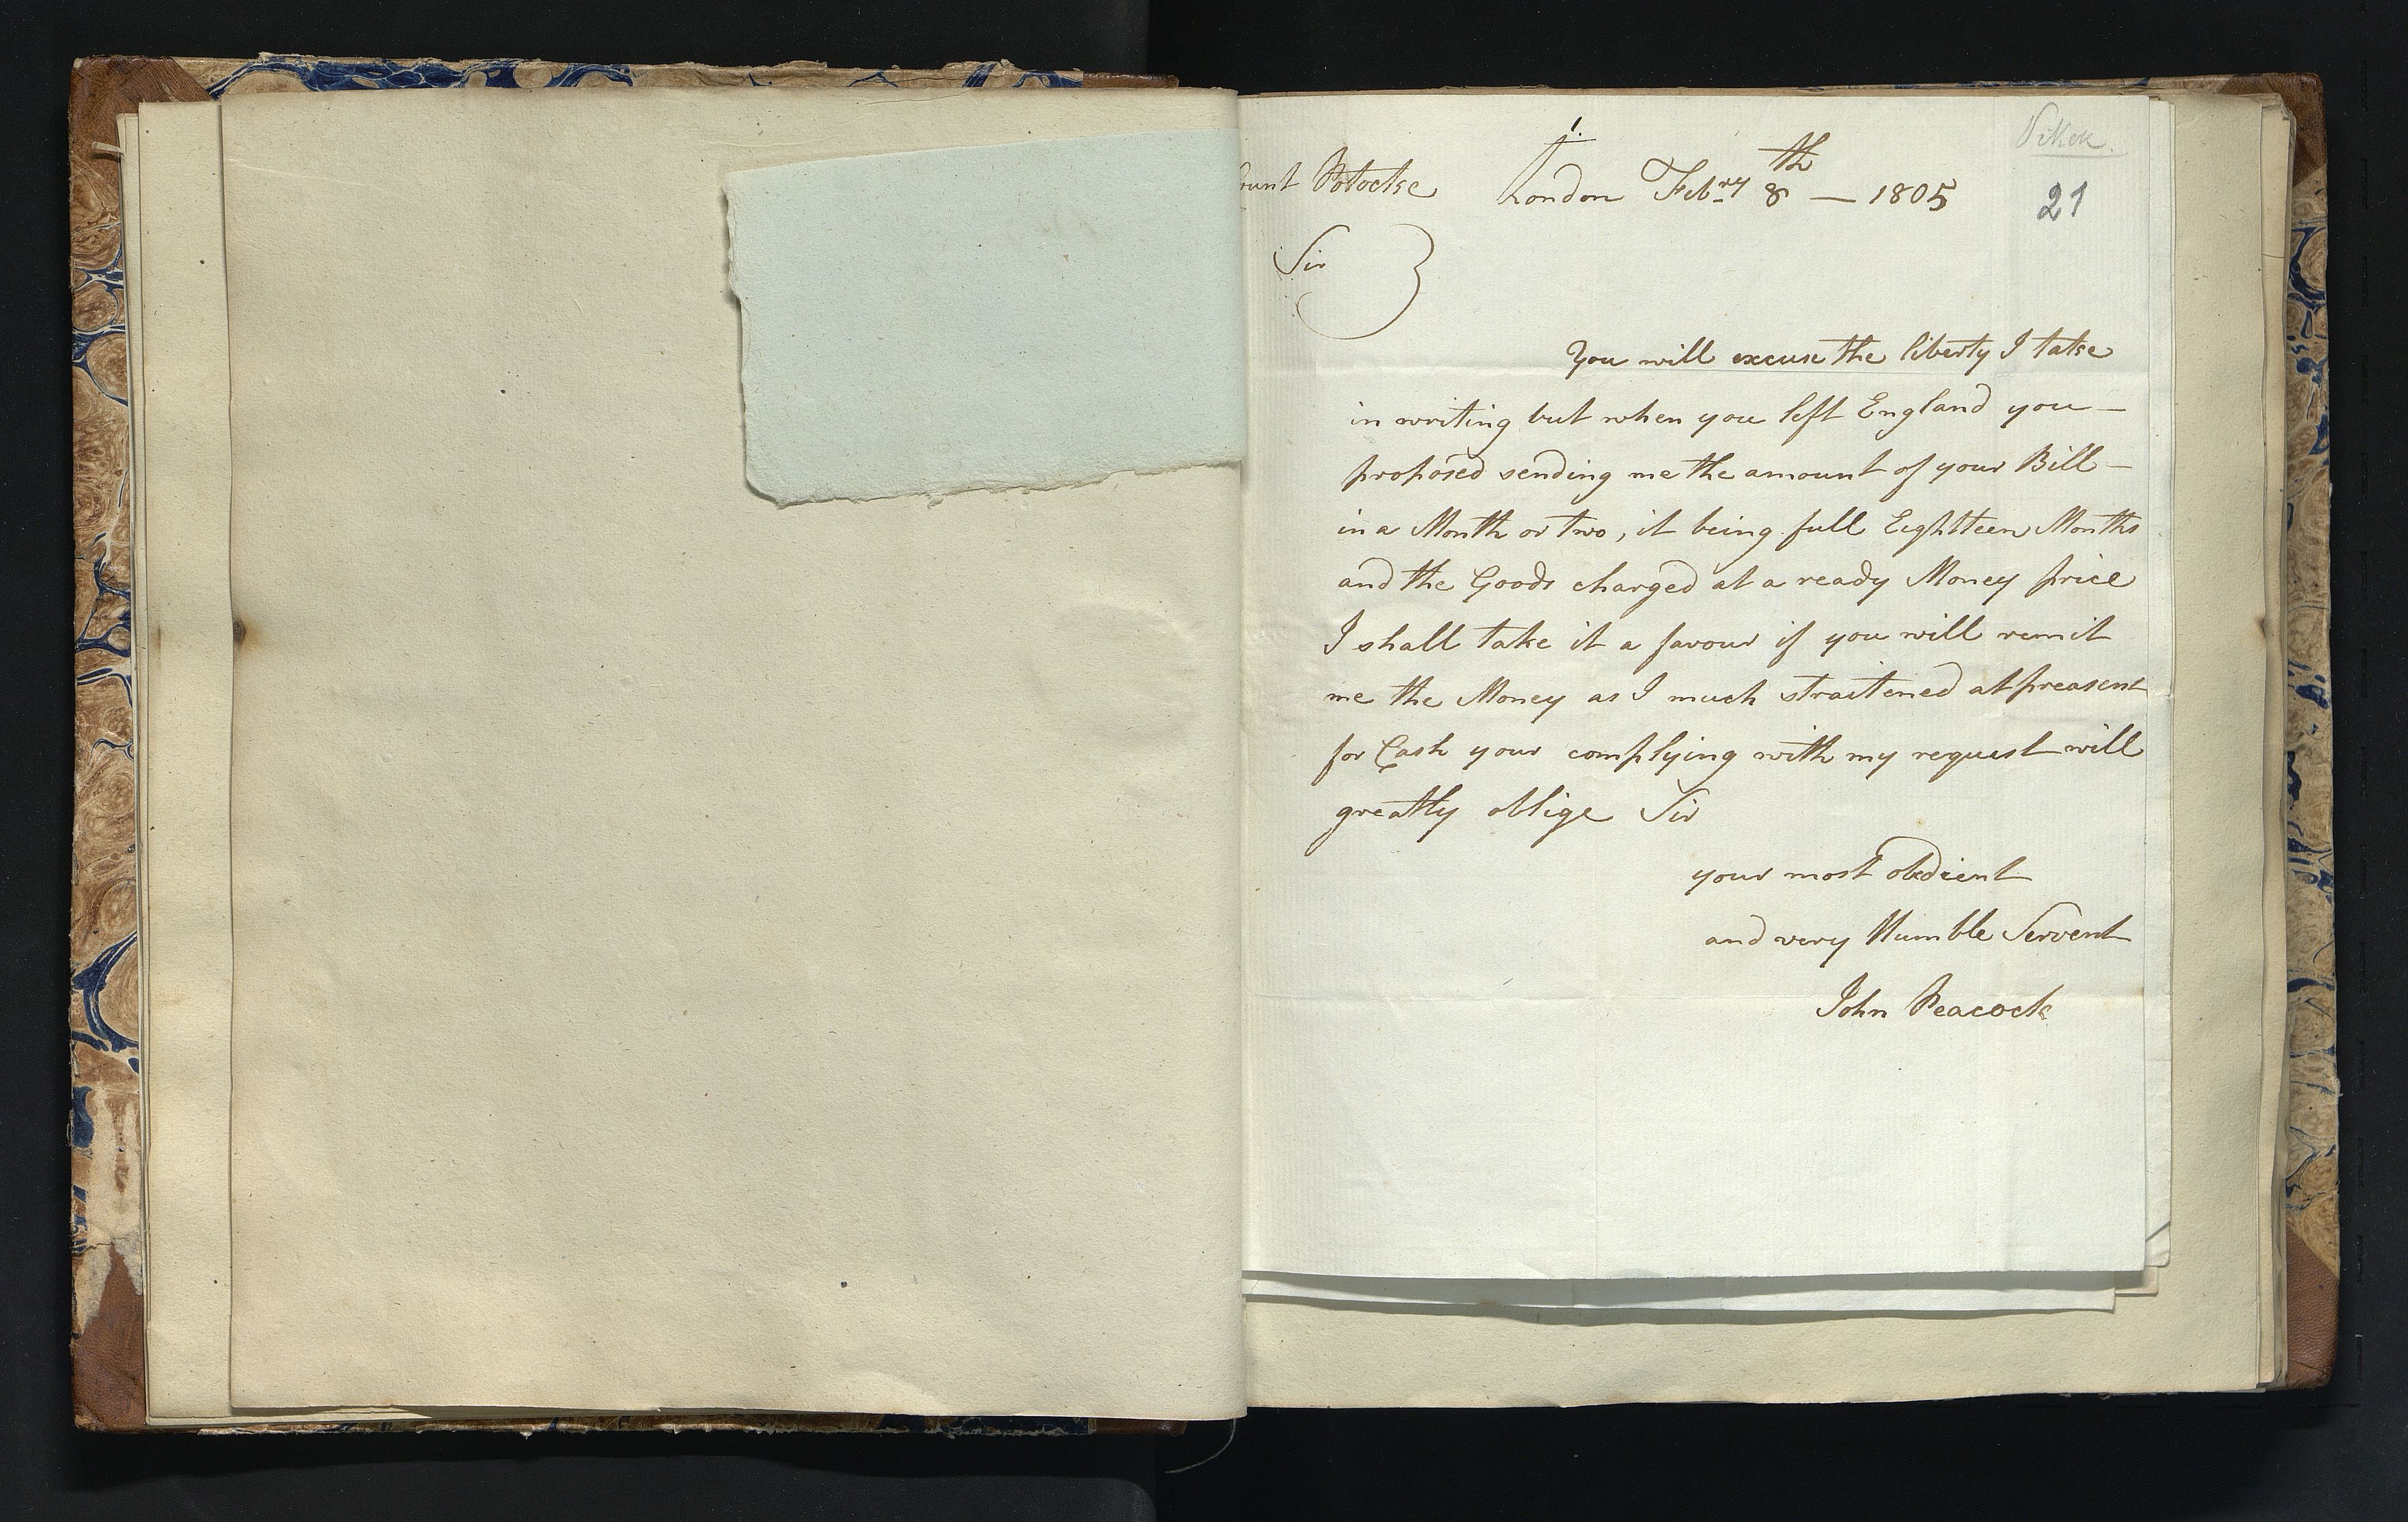 1.
Pikok.
Count Potockie London Febry 8th — 1805
21
Sir
You will excuse the liberty I take
in writing but when you left England you —
proposed sending me the amount of your Bill —
in a Month or two, it being full Eightteen Months
and the Goods charged at a ready Money price
I shall take it a favour if you will remit
me the Money as I much straitened at preasent
for Cash your complying with my request will
greatly oblige Sir
your most obdient
and very Humble Servent
John Peacock